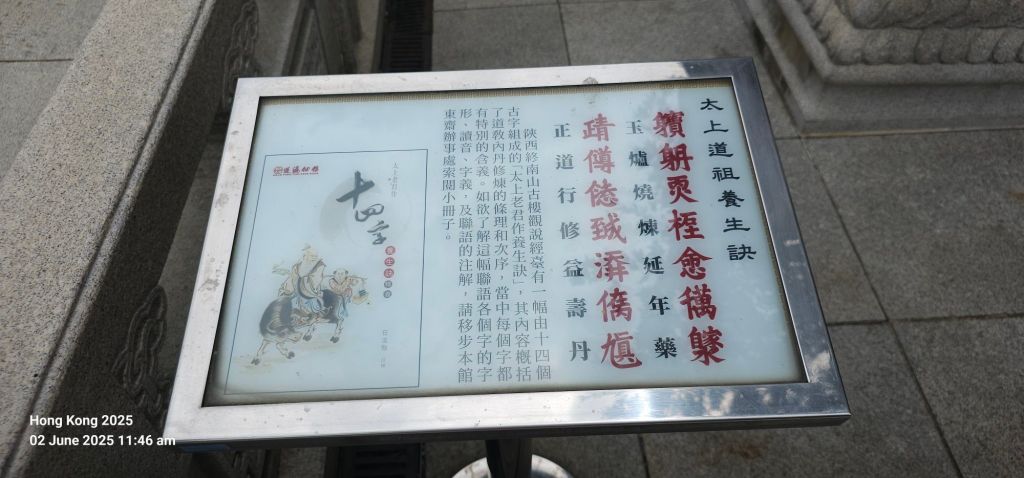 太上道祖養生訣
玉爐燒煉延年藥
正道行修益壽丹
陝西終南山古樓觀說經臺有一幅由十四個
古字組成的「太上老君作養生訣」，其內容概括
了道教內丹修煉的條理和次序，當中每個字都
有特別的含義。如欲了解這幅聯語各個字的字
形、讀音、字義，及聯語的注解，請移步本館
東齋辦事處索閱小冊子。
蓬瀛仙館
十四字
Hong Kong 2025
02 June 2025 11:46 am